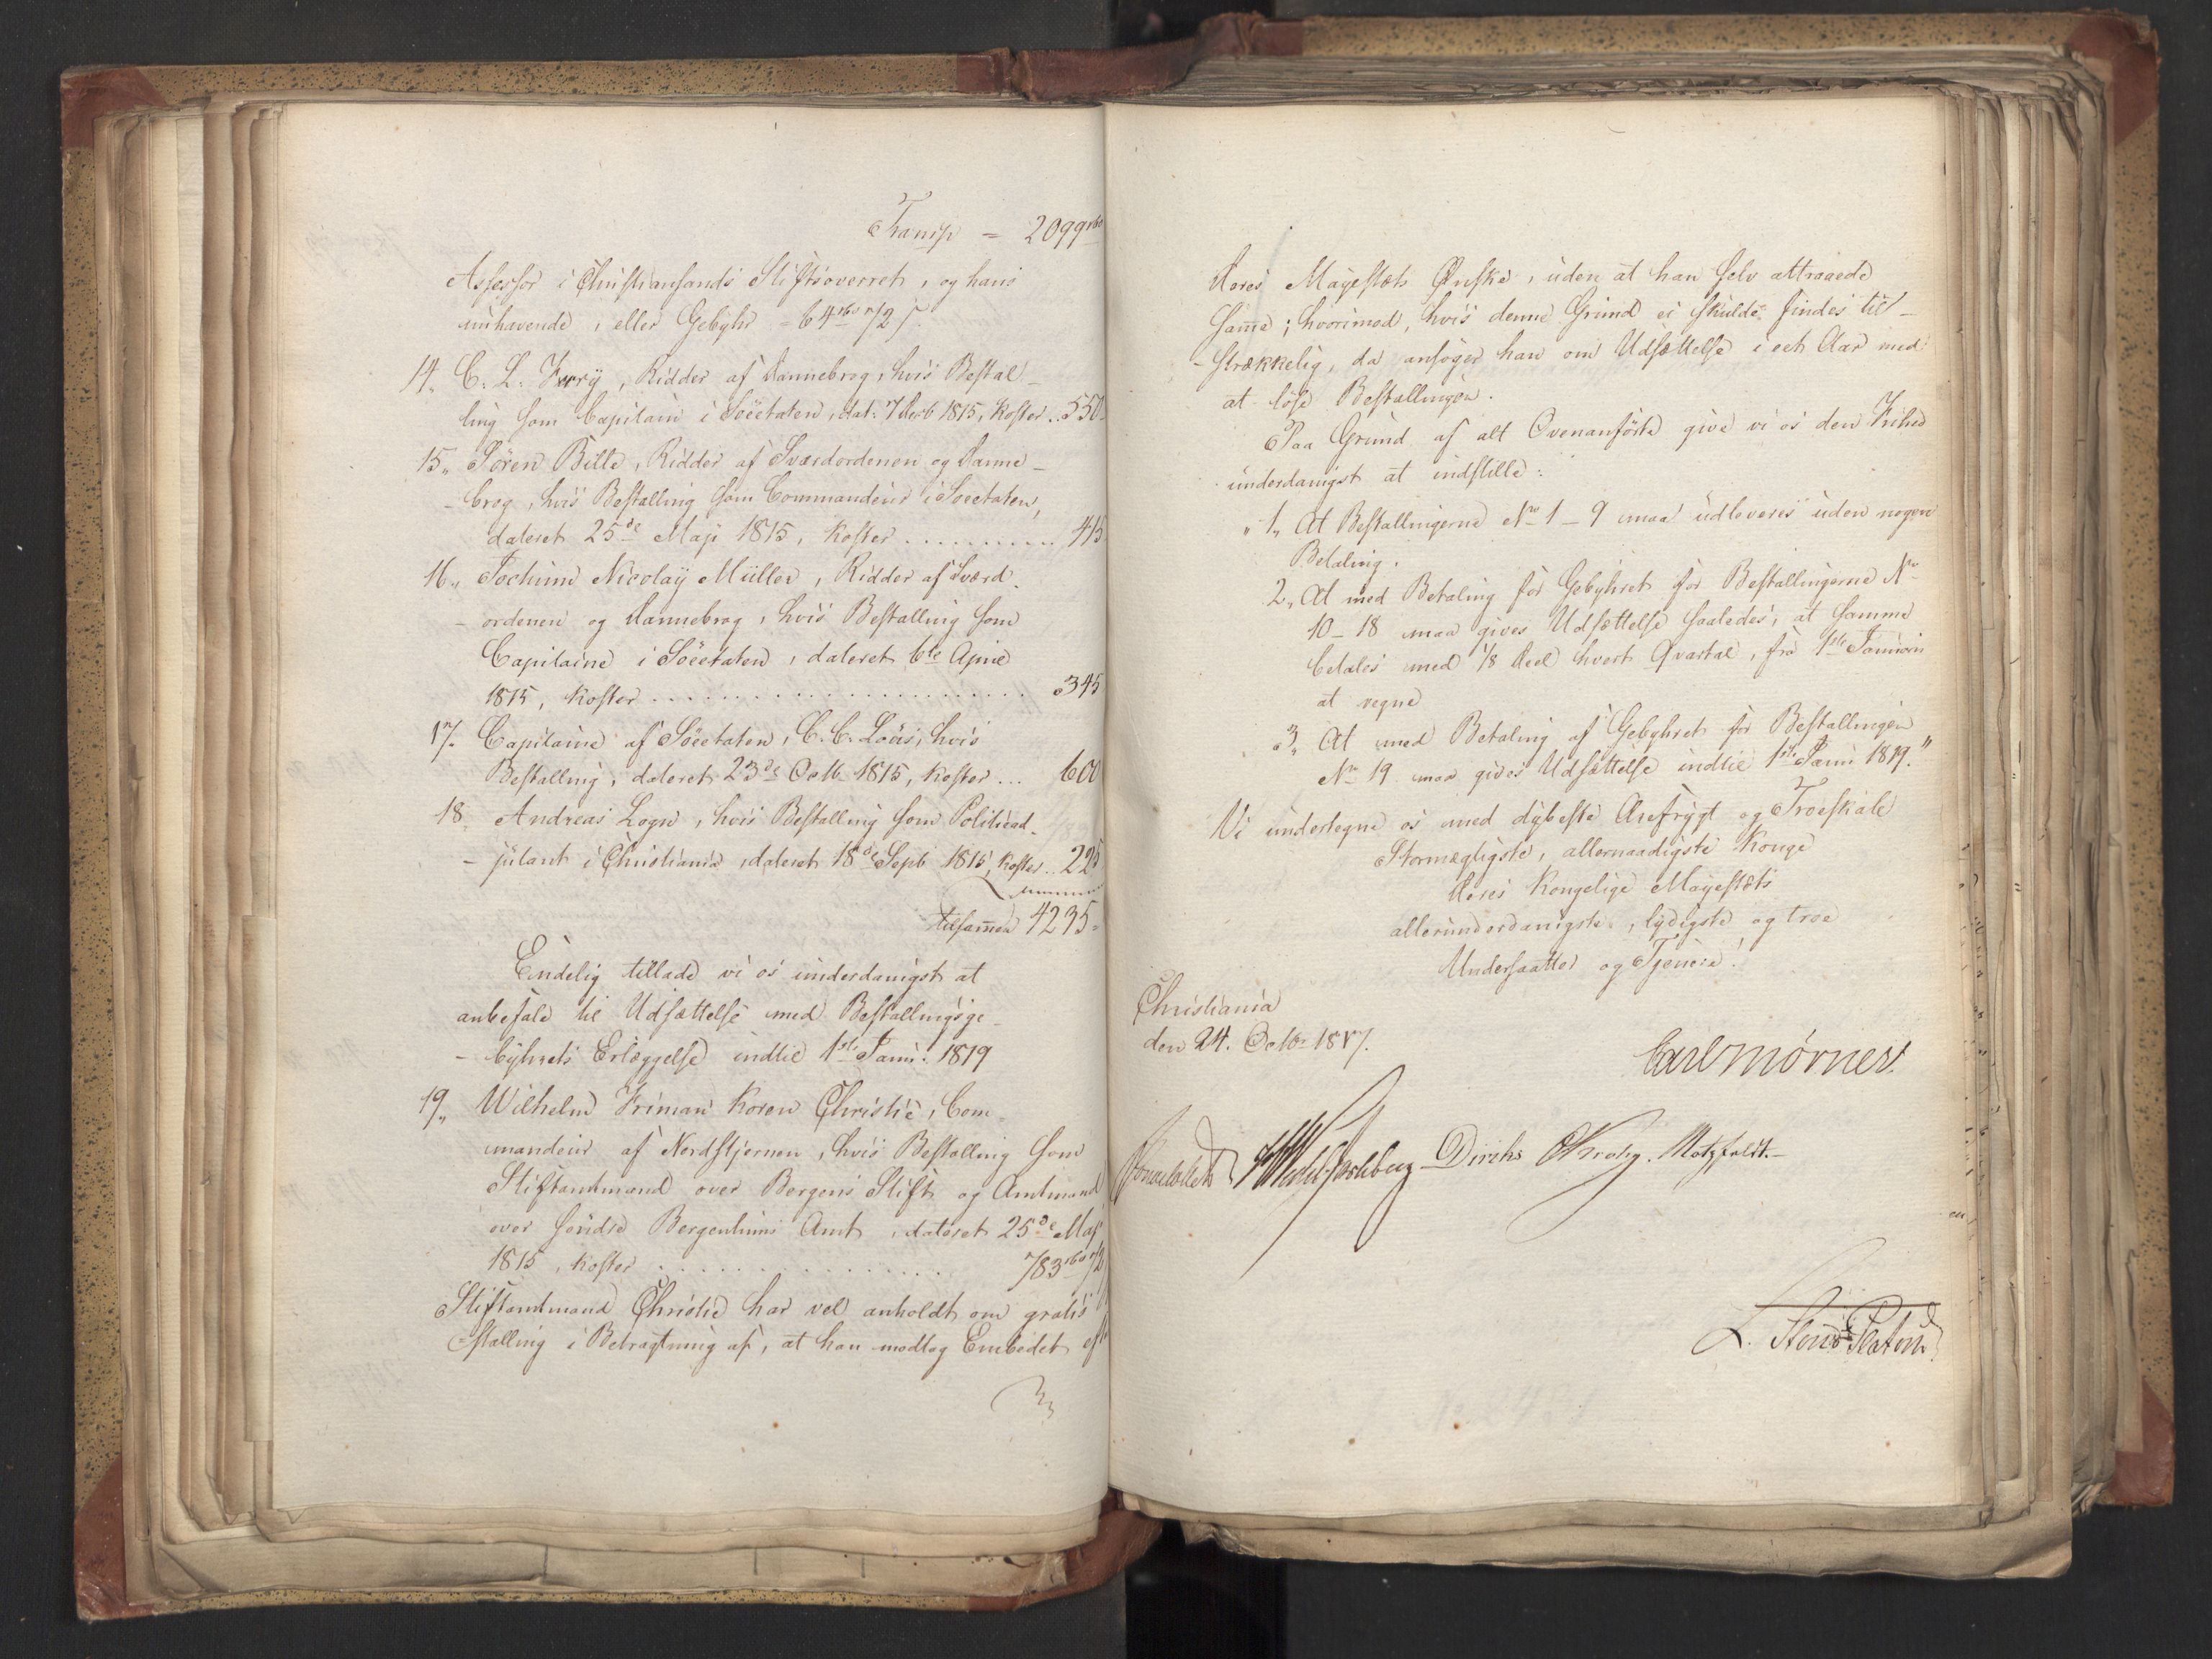 Transp = 2099 rbd
Assessor i Christiansands Stiftsoverret, og hans
inhavende, eller Gebyhr = 64 rbd 72 s
14. C. L. Irry, Ridder af Dannebrog, hvis Bestal-
ling som Capitain i Söeetaten, dat: 7 Decb 1815, koster.. 550
15. Sören Bille, Ridder af Sværdordenen og Danne-
- brog, hvis Bestalling som Commandeur i Söeetaten,
dateret 25de Maji 1815, koster .......... 415
16. Jochum Nicolaÿ Müller, Ridder af Sværd
- ordenen og Dannebrog, hvis Bestalling som
Capitaine i Söeetaten, dateret 6te April
1815, koster ...................... 345
17. Capitaine af Söeetaten, C. C. Lous, hvis
Bestalling, dateret 23de Octb 1815, koster ... 600
18. Andreas Logn, hvis Bestalling som Politiead-
- jutant i Christiania, dateret 18de Septb 1816, koster.. 225
tilsammen 4235
Endelig tillade vi os underdanigst at
anbefale til Udsættelse med Bestallingsge-
- byhrets Erlæggelse indtil 1ste Janu: 1819
19. Wilhelm Friman Koren Christie, Com-
mandeur af Nordstjernen, hvis Bestalling som
Stiftamtmand over Bergens Stift og Amtmand
over söndre Bergenhuus Amt, dateret 25de Maj
1815, koster ................ 783 rbd 72
Stiftamtmand Christie har vel anholdt om gratis
- stalling i Betragtning af, at han modtog Embedet eft
Deres Majestæts Önske, uden at han selv attraaede
samme; hvorimod, hvis denne Grund ei skulde findes til-
- strækkelig, da ansøger han om Udsættelse i eet Aar med
at löse Bestallingen.
Paa Grund af alt Ovenanförte give vi os den Frihed
underdanigst at indstille:
" 1, At Bestallingerne No 1 - 9 maa udleveres uden nogen
Betaling.
2, At med Betaling for Gebyhret for Bestallingerne No
10 - 18 maa gives Udsættelse saaledes, at samme
betales med 1/8 Deel hvert Qvartal, fra 1ste Januari
at regne
3, At med Betaling af Gebyhret for Bestallingen
No 19 maa gives Udsættelse indtil 1ste Janu 1819."
Vi undertegne os med dybeste Ærefrygt og Troeskab
Stormægtigste, allernaadigste Konge
Deres Kongelige Majestæts
allerunderdanigste, lydigste og troe
Undersaatter og Tjenere!
Christiania
den 24. Octbr 1817.
Carl Mörner
Sommerhielm HWedel Jarlsberg Diriks CKrohg. Motzfeldt.
L. Stoud Platou